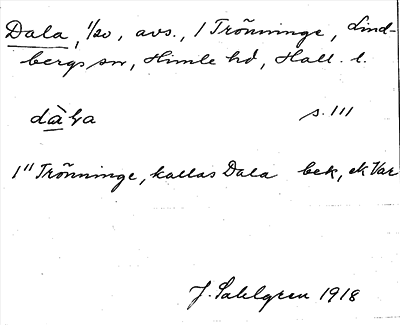 Dala, 1/20, avs., 1 Trönninge, Lind-
bergs sn, Himle hd, Hall. l.
dàla s. 111
1" Trönninge, kallas Dala bek, ek Var
J. Sahlgren 1918